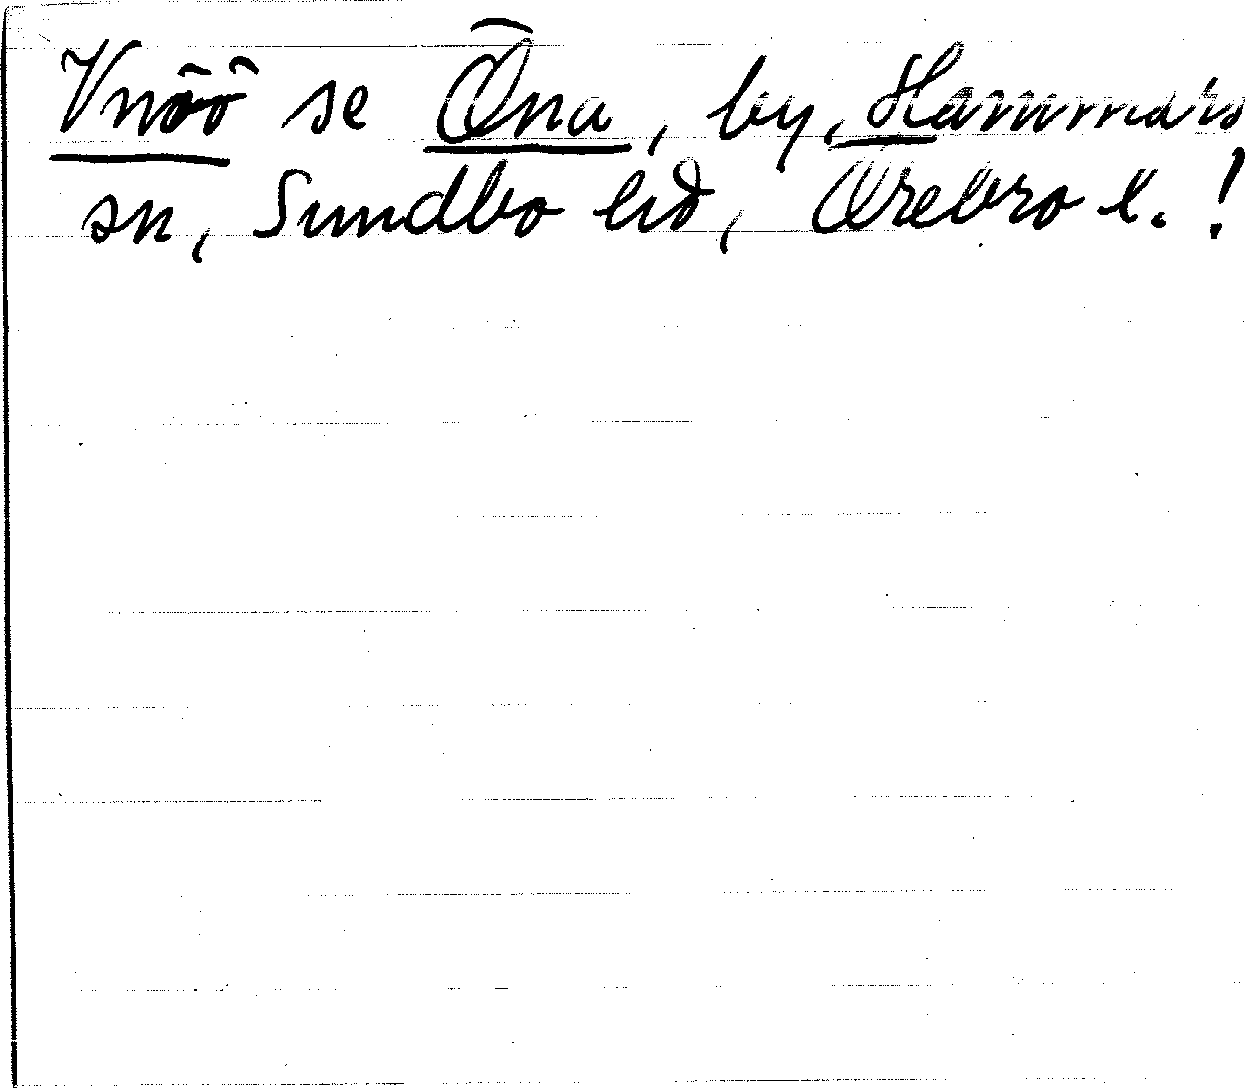 Vnöö se Öna, by, Hammars
sn, Sundbo hd, Örebro l. !